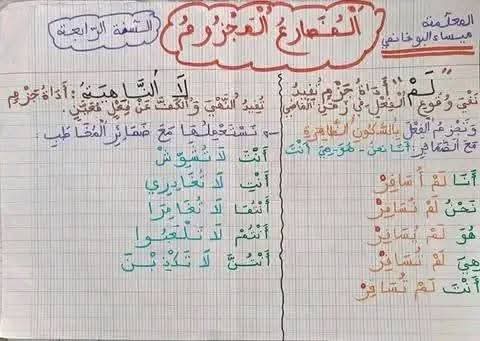 المعلمة
ميساء البوخانفي
المُضارِعُ المَجْزُومُ
السنة الرابعة
"لَمْ" أَدَاةُ جَزْمٍ تُفِيدُ
نَفْيَ وُقُوعِ الْفِعْلِ فِي زَمَنِ الْمَاضِي
وَتَجْزِمُ الْفِعْلَ بِالسُّكُونِ الظَّاهِرَةِ
مَعَ الضَّمَائِرِ: أَنَا - نَحْنُ - هُوَ - هِيَ - أَنْتَ
أَنَا لَمْ أُسَافِرْ
نَحْنُ لَمْ نُسَافِرْ
هُوَ لَمْ يُسَافِرْ
هِيَ لَمْ تُسَافِرْ
أَنْتَ لَمْ تُسَافِرْ
لَا النَّاهِيَةُ: أَدَاةُ جَزْمٍ
تُفِيدُ النَّهْيَ وَالْكَفَّ عَنْ فِعْلٍ مُعَيَّنٍ
نَسْتَعْمِلُهَا مَعَ ضَمَائِرِ الْمُخَاطَبِ:
أَنْتَ لَا تُشَوِّشْ
أَنْتِ لَا تُغَادِرِي
أَنْتُمَا لَا تُغَامِرَا
أَنْتُمْ لَا تَلْعَبُوا
أَنْتُنَّ لَا تَكْذِبْنَ